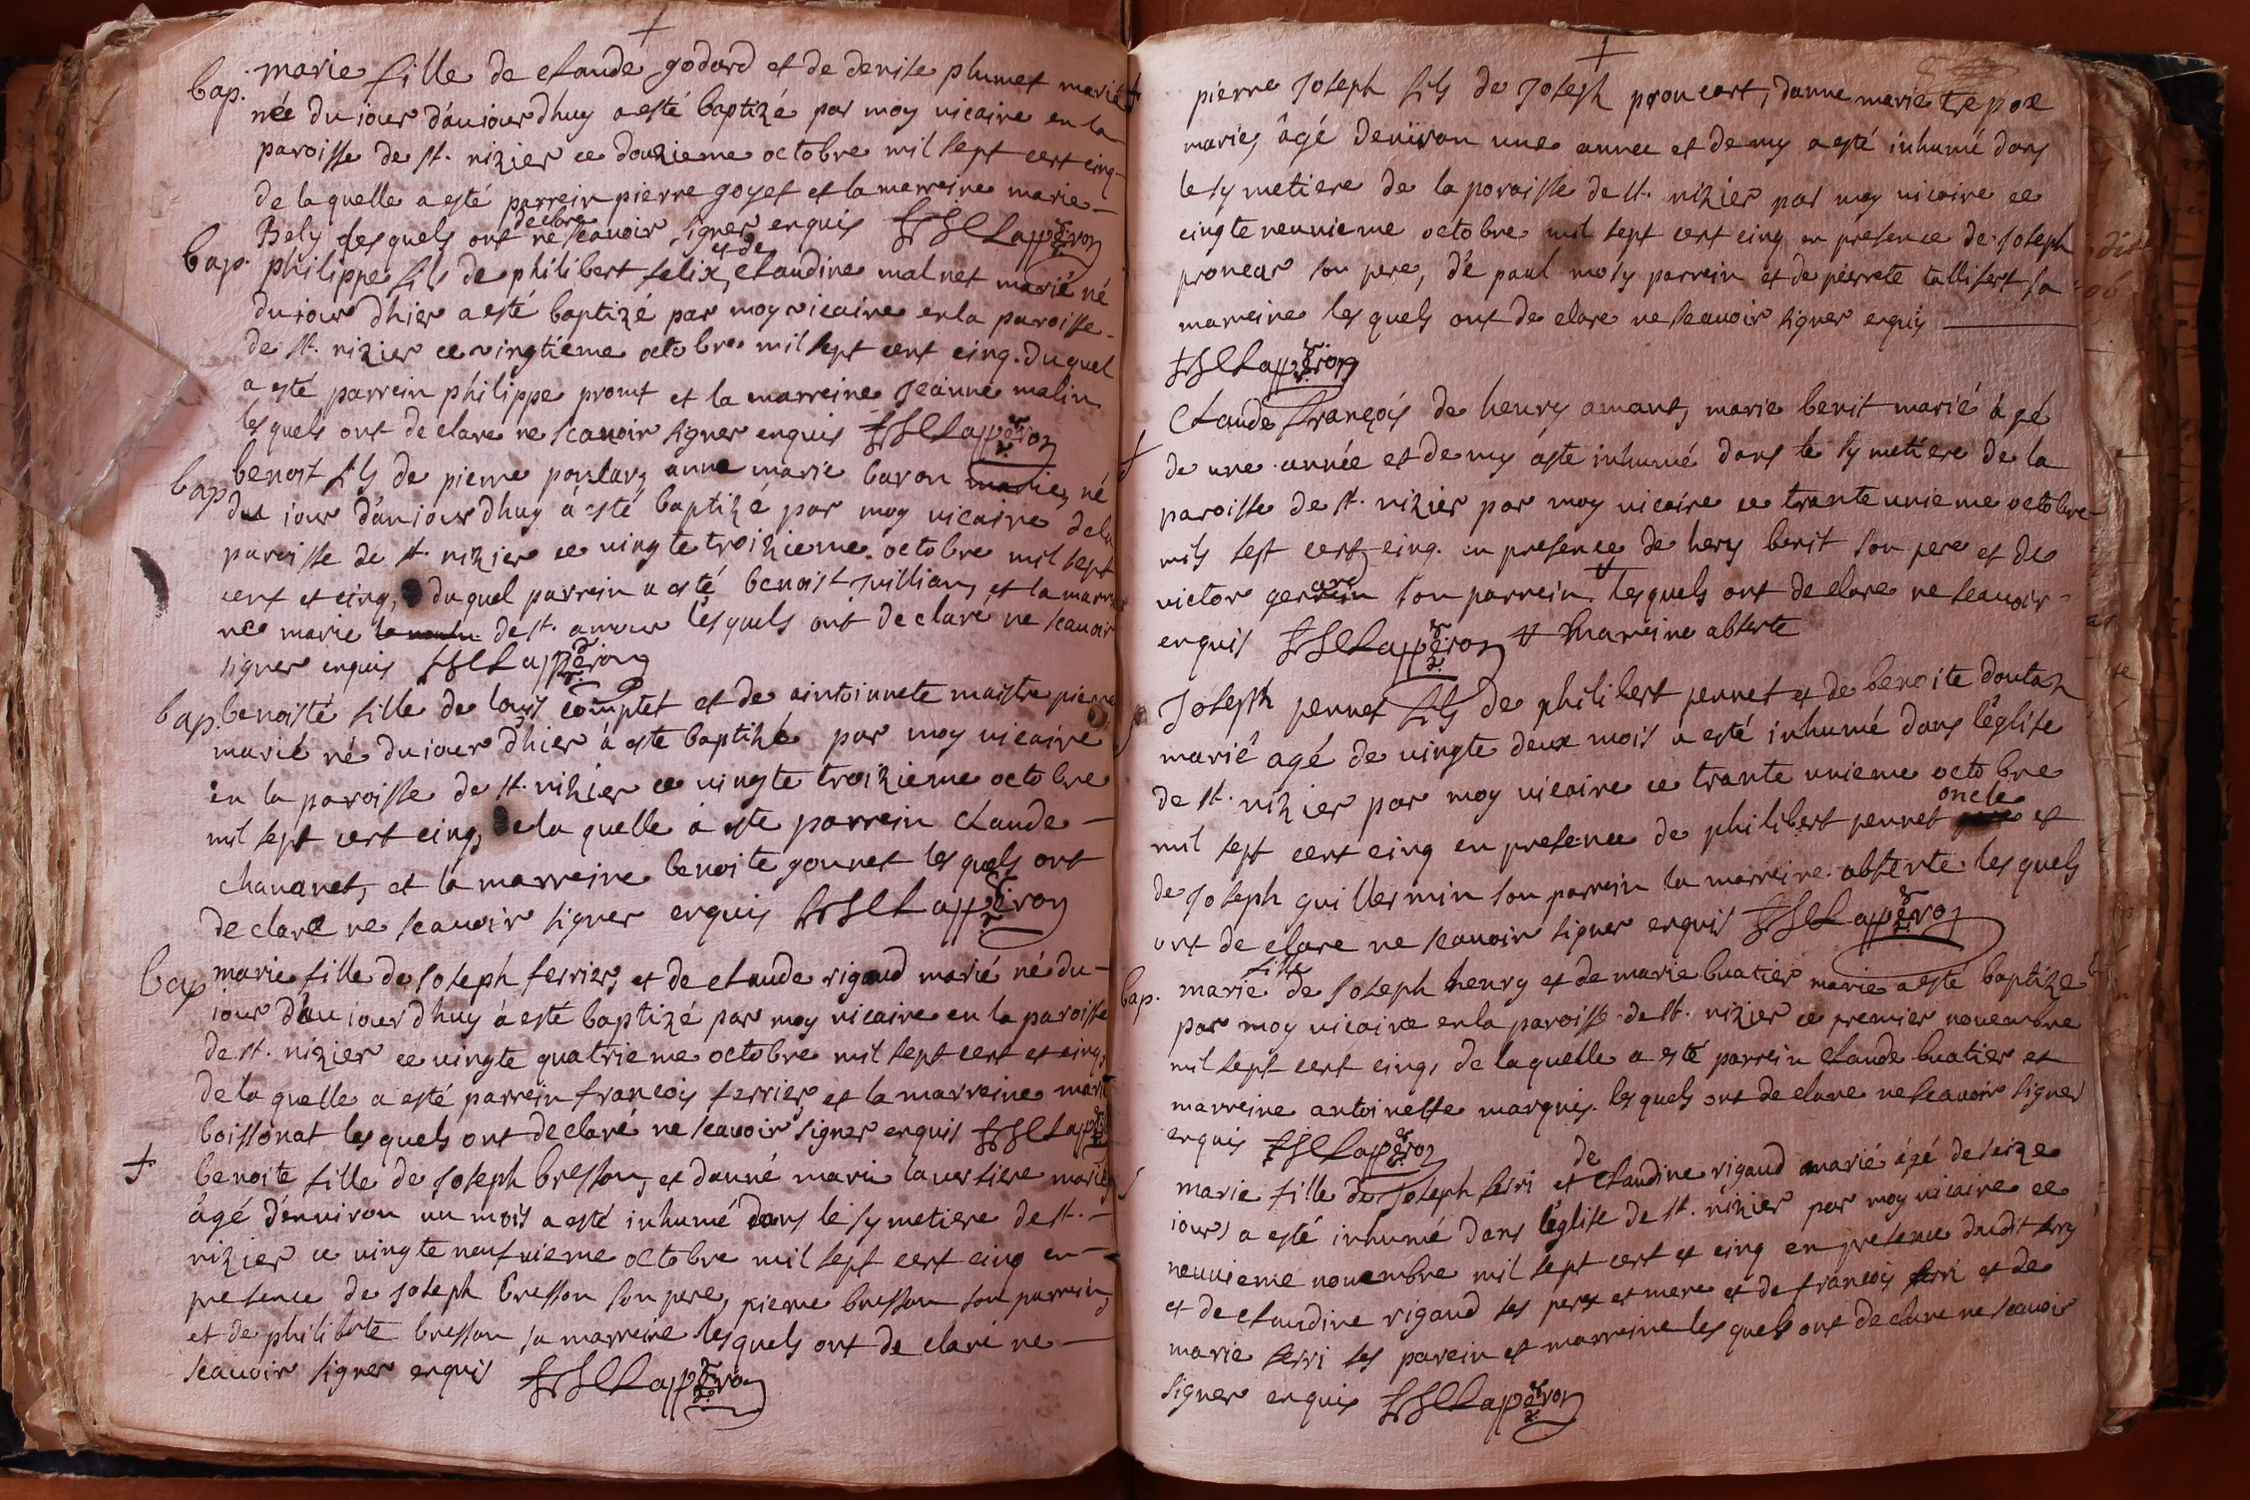 bap. marie fille de claude godard et de denise plumet marié
née du iour d'auiourdhuy a esté baptizé par moy vicaire en la
paroisse de st. nizier ce douzieme octobre mil sept cent cinq
de laquelle a esté parrein pierre goyet et la marreine marie
Bely lesquels ont declare ne scauoir signer enquis
bap. philippe fils de philibert felix et de claudine malnet marié né
du iour dhier a esté baptizé par moy vicaire en la paroisse
de st. nizier ce vingtieme octobre mil sept cent cinq. duquel
a esté parrein philippe promt et la marreine Jeanne malin
lesquels ont declare ne scauoir signer enquis
bap benoist fils de pierre anne marie baron né
du iour d'auiourdhuy à esté baptizé par moy vicaire de la
paroisse de st. nizier ce vingte troizieme octobre mil sept
cent et cinq, duquel parrein a esté benoist Juillian, et la marrei
nee marie de st. amour lesquels ont declaré ne scauoir
signer enquis
bap. benoisté fille de louis comptet et de aintoinnete maistre pierre
marié né du iour d'hier à este baptizé par moy vicaire
en la paroisse de st. nizier ce vingte troizieme octobre
mil sept cent cinq, de la quelle à este parrein claude
chauanet, et la marreine benoite gounet lesquels ont
declare ne scauoir signer enquis
bap marie fille de Joseph ferrier, et de claude rigaud marié né du
iour d'auiourdhuy à esté baptizé par moy vicaire en la paroisse
de st. nizier ce vingte quatrieme octobre mil sept cent et cinq,
de la quelle a esté parrein françois ferrier, et la marreine marie
boissonat lesquels ont declaré ne scauoir signer enquis
benoite fille de Joseph bresson, et danné marie lauersiere mariés
âgé d'enuiron un mois a esté inhumé dans le symetiere de st.
nizier ce vingte neufuieme octobre mil sept cent cinq en
presence de Joseph bresson son pere, pierre bresson son parrein,
et de philiberte bresson sa marreine lesquels ont de claré ne
scauoir signer enquis
pierre Joseph fils de Joseph proncart, danne marie
mariés âgé denuiron une annee et demy a esté inhumé dans
le symetiere de la paroisse de st. nizier par moy vicaire ce
vingte neuuieme octobre mil sept cent cinq en presence de Joseph
proncar son pere, de paul mosy parrein et de pierrete tallisert sa
marreine lesquels ont de clare ne scauoir signer enquis
Claude françois de henry amant, marie benit marié âgé
de une année et demy à esté inhumé dans le symetiere de la
paroisse de st. nizier par moy vicaire ce trante unieme octobre
mils sept cent cinq. en presence de hery benit son pere et de
victor son parrein lesquels ont declare ne scauoir
enquis # marreine absente
Joseph pennet fils de philibert pennet et de benoite
marié agé de vingte deux mois a esté inhumé dans l'église
de st. nizier par moy vicaire ce trante unieme octobre
mil sept cent cinq en presence de philibert pennet oncle et
de Joseph guillermin son parrein la marreine absente lesquels
ont de clare ne scauoir signer enquis
bap. marie fille de Joseph henry et de marie buatier marié a esté baptize
par moy vicaire en la paroisse de st. nizier ce premier nouembre
mil sept cent cinq, de laquelle a esté parrein claude buatier et
marreine antoinette marquis. lesquels ont de clare ne scauoir signer
enquis
marie fille de Joseph ferri et de claudine rigaud marié âgé de seize
iours a esté inhumé dans l'église de st. nizier par moy vicaire ce
neuuieme nouembre mil sept cent et cinq en presence dudit ferry
et de claudine rigaud ses pere et mere et de françois ferri et de
marie ferri ses parrein et marreine lesquels ont declare ne scauoir
signer enquis